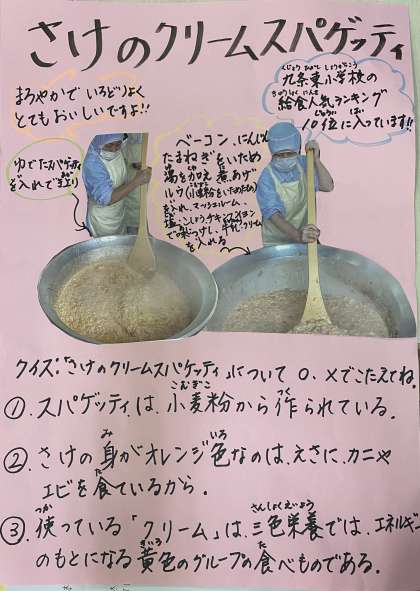 さけのクリームスパゲッティ
まろやかで いろどりよく
とてもおいしいですよ!!
九条東小学校の
くじょうひがししょうがっこう
給食人気ランキング
きゅうしょくにんき
10位に入っています!!
ゆでたスパゲッティ
を入れてできあがり
ベーコン、にんじん
たまねぎをいため
湯を加え煮、あげ
ルウ(小麦粉をいためたもの)
を入れ、マッシュルーム、
塩、こしょう、チキンブイヨン
で味つけし、牛乳、クリーム
を入れる
クイズ:「さけのクリームスパゲッティ」について ○、×でこたえてね。
こむぎこ つく
①.スパゲッティは、小麦粉から作られている。
み いろ
②.さけの身がオレンジ色なのは、えさに、カニや
た
エビを食べているから。
つか さんしょくえいよう
③.使っている「クリーム」は、三色栄養では、エネルギー
きいろ た
のもとになる黄色のグループの食べものである。